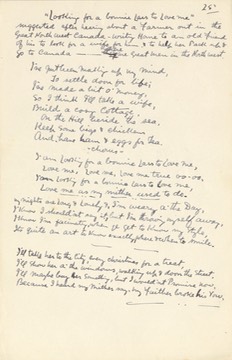 25
"Looking for a bonnie lass to Love me"
suggested after seeing about a Farmer out in the
Great North West Canada - writing Home to an old friend
of his to look for a wife for him & to take her Pack up &
go to Canada great man in the North West
I've gotten making up my mind,
To settle down for life;
I've made a bit o' money,
So I think I'll take a wife,
Build a cosy Cottage,
On the Hill beside the sea,
Keep some hens & chickens
And have ham & eggs for tea.
- chorus -
I am looking for a bonnie lass to Love me,
Love me, Love me, Love me true oo-oo,
I am looking for a bonnie lass to Love me,
Love me as my mither used to do.
My nights are long & Lonely & I'm weary a' the Day,
I know I should not say it, but I'm throwing myself away,
I know I'm fascinating when ye get to know my style,
It's quite an art to know exactly where & when to smile.
I'll take her to the city, every christmas for a treat
I'll show her a' the windows, walking up & down the street,
I'll maybe buy her something, but I would not Promise now,
Because I heard my Mither say, my faither broke his Vow.